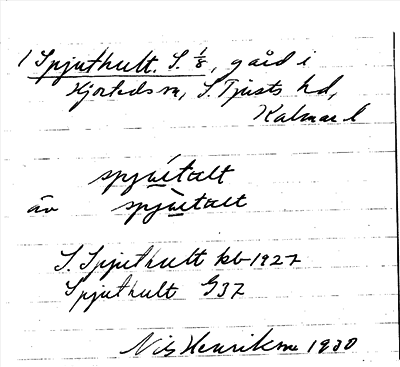 1 Spjuthult. S. 1/8, gård i
Hjorteds sn, S. Tjusts hd,
Kalmar l
spjútalt
äv spjùtalt
S. Spjuthult kb 1927
Spjuthult G37
Nils Henriksson 1930